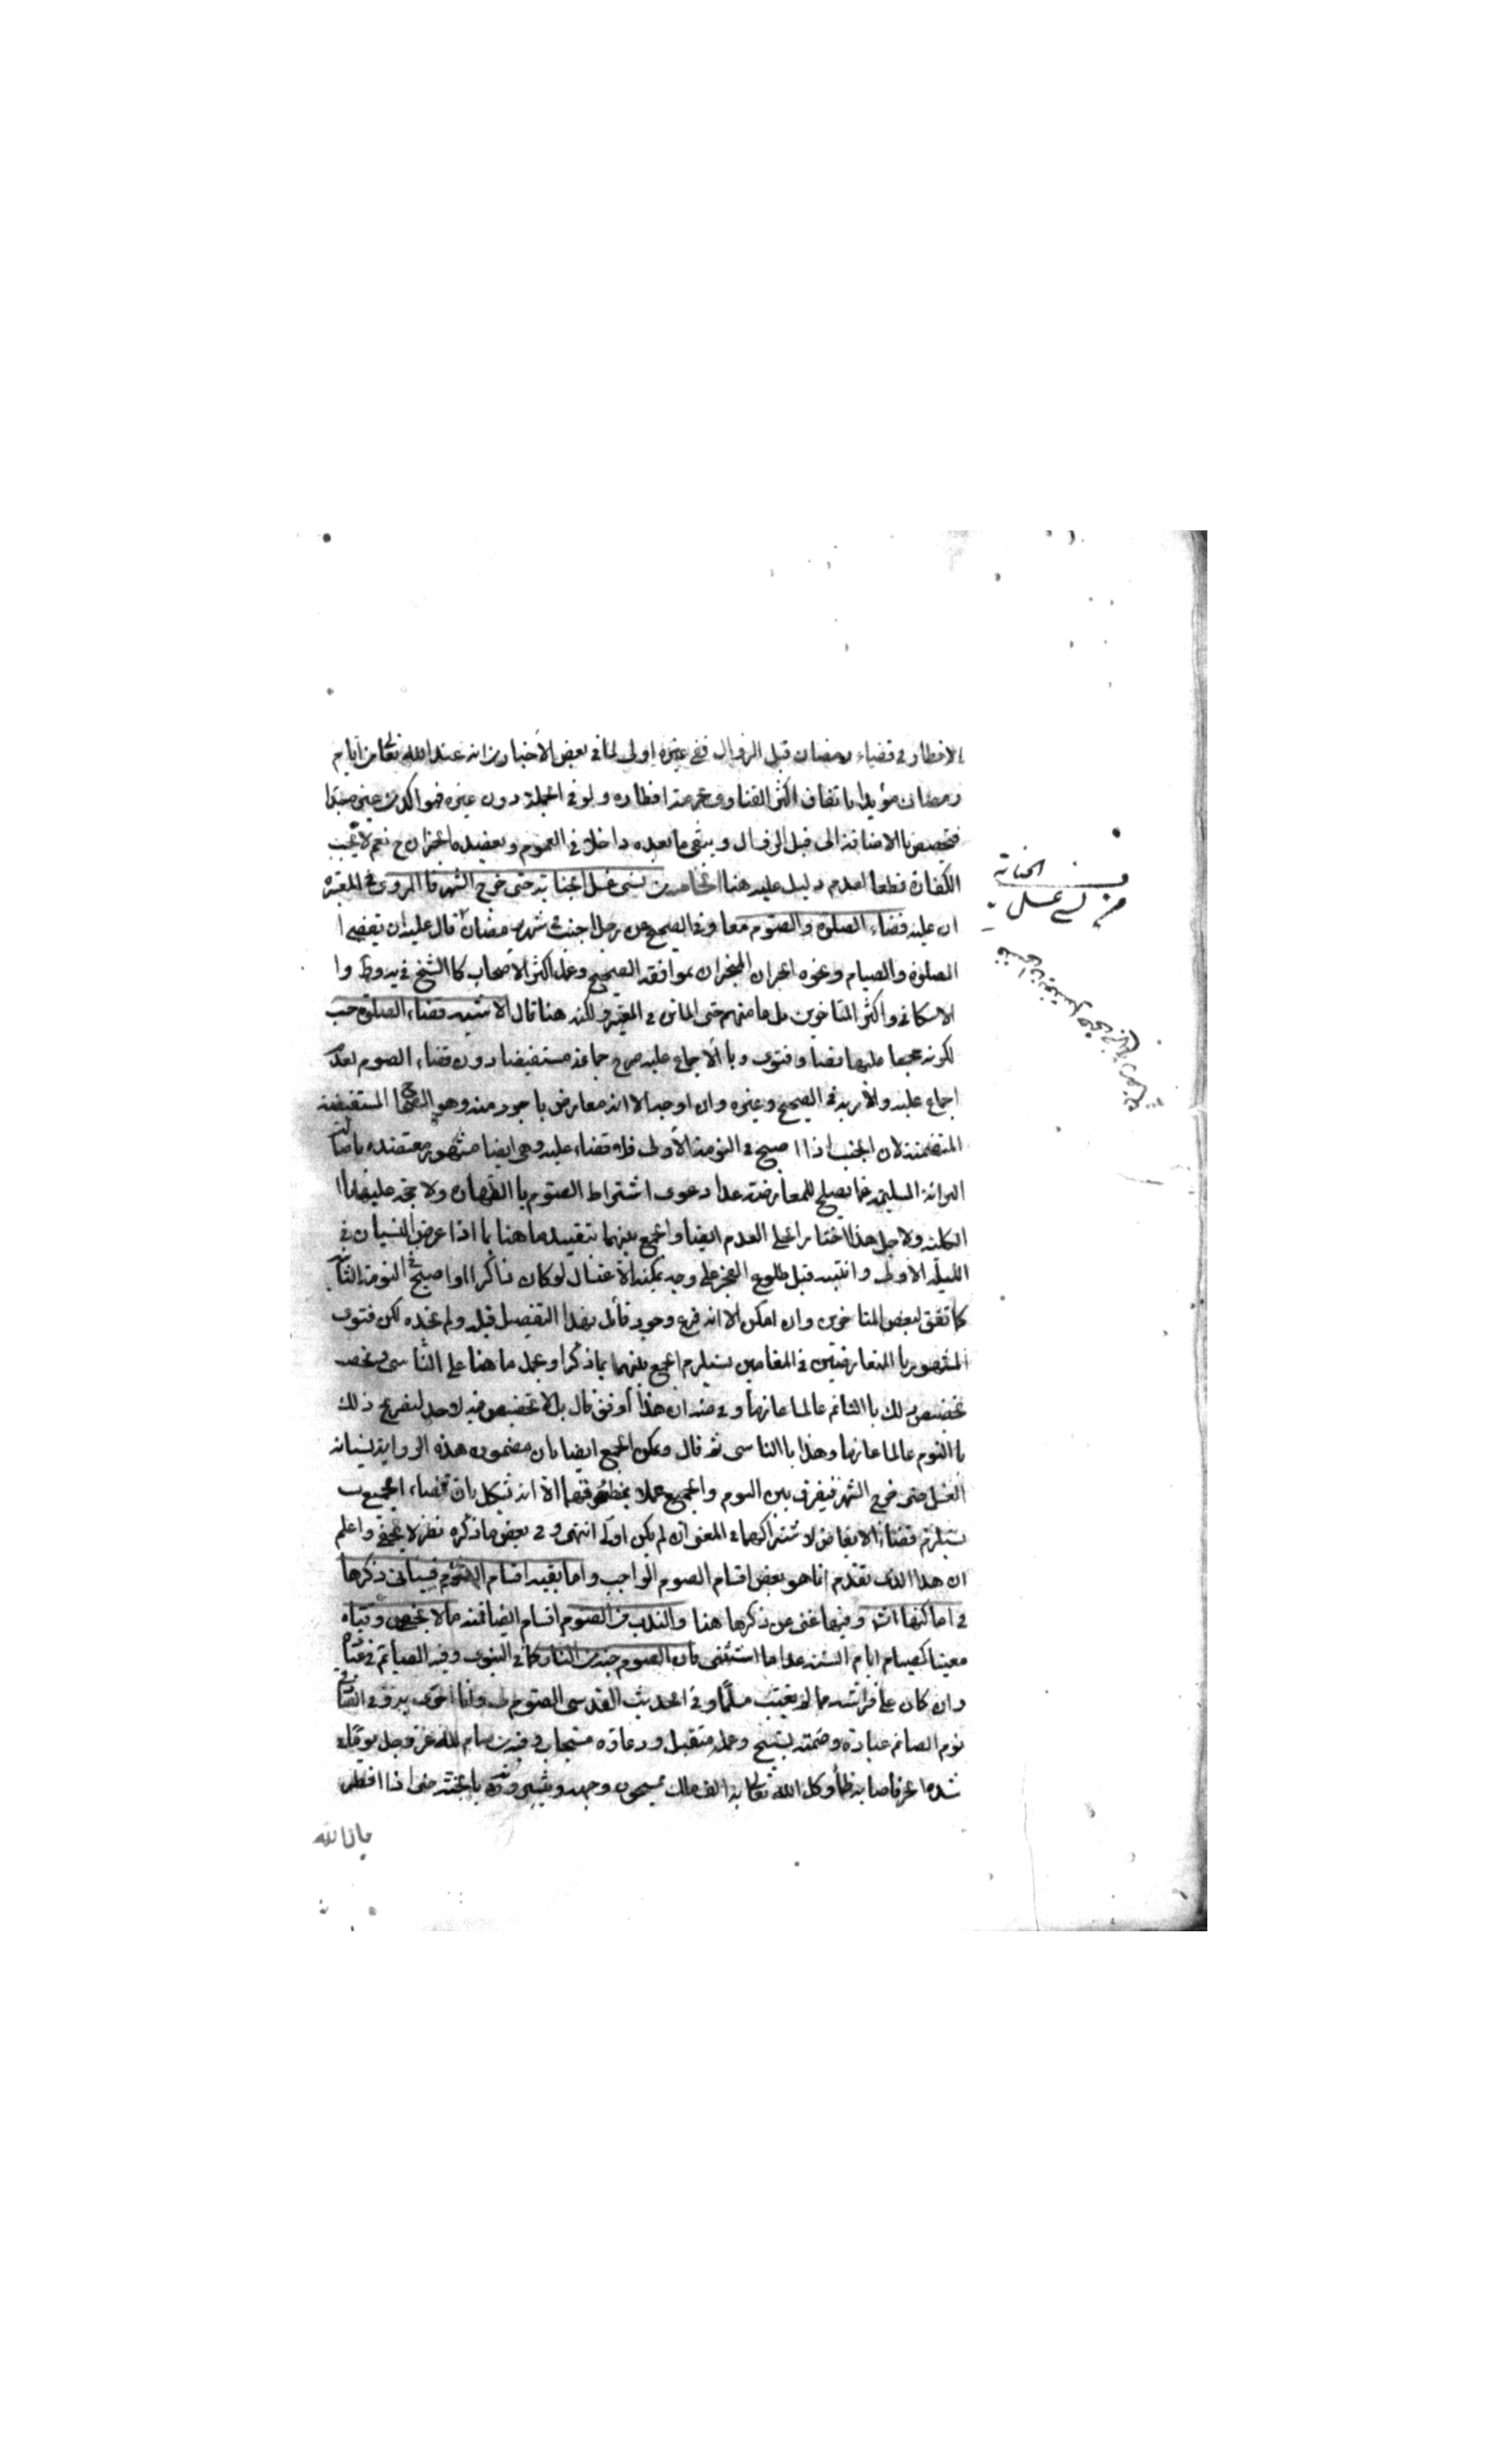 الافطار في قضاء رمضان قبل الزوال ففي غيره اولى لما في بعض الأخبار من انه عند الله تعالى من أيام
رمضان مؤيدا باتفاق اكثر الفتاوى بحرمة افطاره ولو في الجملة دون غيره فهو اكد من غيره جدا
فتخصيص بالاضافة الى قبل الزوال ويبقى ما بعده داخلا في العموم ويعضده الخبران نعم لا يجب
الكفارة قطعا لعدم دليل عليه هنا الخامس من نسي غسل الجنابة حتى خرج الشهر فالمروي في المعتبرة
ان عليه قضاء الصلوة والصوم معا وفي الصحيح عن رجل اجنب في شهر رمضان قال عليه ان يقضي ا
الصلوة والصيام ونحوه الخبران المنجبران بموافقة الصحيح وعمل اكثر الأصحاب كالشيخ في يه وط وا
الاسكافي واكثر المتاخرين بل عامتهم حتى الماتن في المعتبر ولكنه هنا قال الاشبه قضاء الصلوة حسب
لكونه مجمعا عليها نصا وفتوى وبالاجماع عليه صرح جماعة مستفيضا دون قضاء الصوم لعدم
اجماع عليه والأمر به في الصحيح وغيره وان اوجبه الا انه معارض باجود منه وهو الصحاح المستفيضة
المتضمنة لان الجنب اذا اصبح في النومة الأولى فلا قضاء عليه وهي ايضا مشهورة معتضدة باصالة
البرائة السليمة عما يصلح للمعارضة عدا دعوى اشتراط الصوم بالطهارة ولا حجة عليها بهذه ا
الكلية ولاجل هذا اختار الحلي العدم ايضا والجمع بينهما بتقييد ما هنا بما اذا عرض النسيان في
الليلة الأولى وانتبه قبل طلوع الفجر على وجه يمكنه الاغتسال لو كان ذاكرا او اصبح في النومة الثانية
كما اتفق لبعض المتاخرين وان امكن الا انه فرع وجود قائل بهذا التفصيل قبله ولم نجده لكن فتوى
المشهور بالمتعارضين في المقامين يستلزم الجمع بينهما بما ذكر او بحمل ما هنا على الناسي
تخصيص ذلك بالنائم عالما عازما وفي ضه ان هذا أوفق قال بل لا تخصيص فيه لاحد لتصريح ذلك
بالنوم عالما عازما وهذا بالناسي ثم قال ويمكن الجمع ايضا بان مضمون هذه الرواية نسيانه
الغسل حتى خرج الشهر فيفرق بين اليوم والجميع عملا بمنطوقهما الا انه يشكل بان قضاء الجميع
يستلزم قضاء الابعاض لاشتراكهما في المعنى ان لم يكن اولى انتهى وفي بعض ما ذكره نظر لا يخفى واعلم
ان هذا الذي تقدم انما هو بعض اقسام الصوم الواجب واما بقية اقسام الصوم فسيأتي ذكرها
في اماكنها انش وفيها غنى عن ذكرها هنا والندب من الصوم اقسام ايضا فمنه ما لا يختص وقتا
معينا كصيام ايام السنة عدا ما استثني فان الصوم جنة من النار كما في النبوي وفيه الصيائم في عبادة
وان كان على فراشه ما لم يغتب مسلما وفي الحديث القدسي الصوم لي وانا اجزي به وفي الصادقي
نوم الصائم عبادة وصمته تسبيح وعمله متقبل ودعاؤه مستجاب وفيه من صام لله عز وجل يوما في
شدة الحر فاصابه ظمأ وكل الله تعالى به الف ملك يمسحون وجهه ويبشرونه بالجنة حتى اذا افطر
قال الله
من نسي غسل
الجنابة